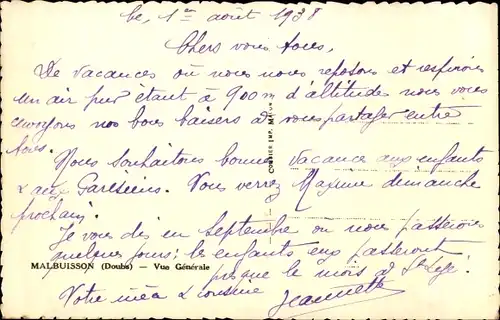 le, 1er août 1938
Chers vous tous,
De vacances où nous nous reposons et respirons
un air pur étant à 900m d'altitude nous vous
envoyons nos bons baisers à vous partager entre
tous.
Nous souhaitons bonne vacance aux enfants
& aux Parisiens. Vous verrez Maxime dimanche
prochain.
Je vous dis en septembre où nous passerons
quelques jours; les enfants eux passeront
MALBUISSON (Doubs) — Vue Générale
presque le mois à St
Votre & cousine Jeannette
COMBIER IMP. MACON